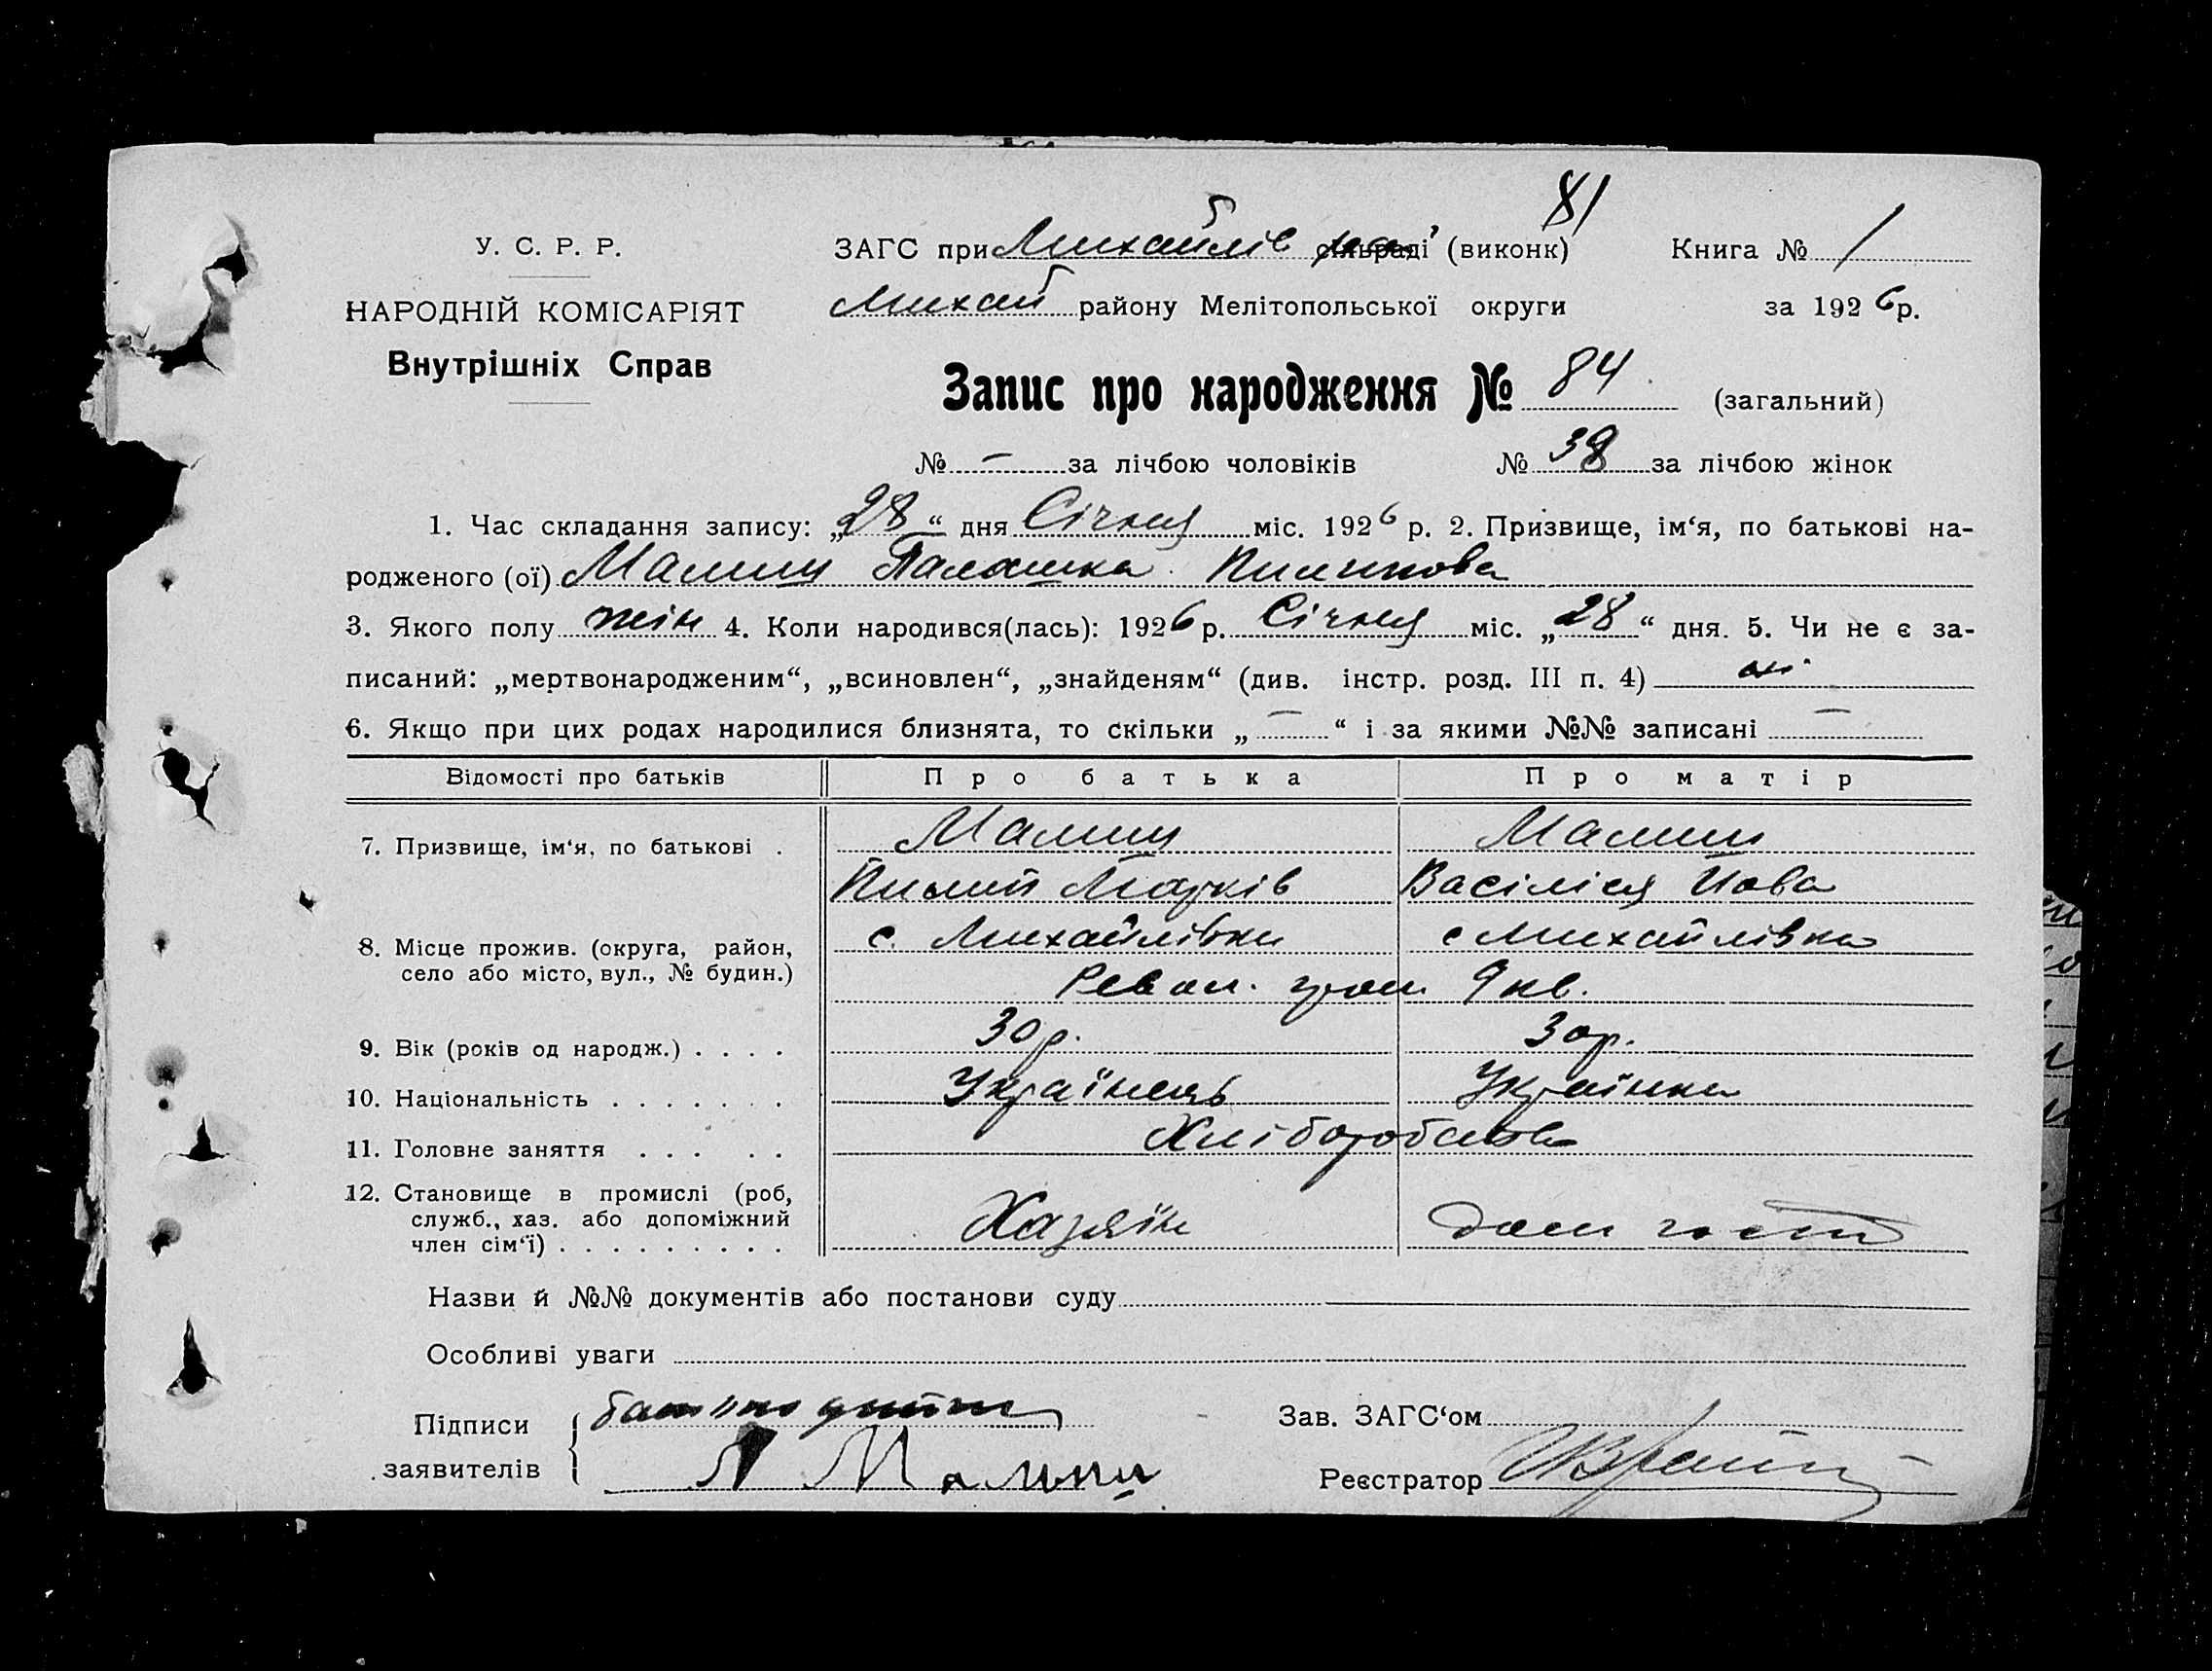 81
У. С. Р. Р. ЗАГС при Михайлів сільраді (виконк) Книга № 1
НАРОДНІЙ КОМІСАРІЯТ Михай району Мелітопольської округи за 1926 р.
Внутрішніх Справ
Запис про народження № 84 (загальний)
№ – за лічбою чоловіків № 38 за лічбою жінок
1. Час складання запису: „28“ дня Січня міс. 1926 р. 2. Призвище, ім‘я, по батькові на-
родженого (ої) Малиш Палашка Пилипова
3. Якого полу жін 4. Коли народився(лась): 1926 р. Січня міс. „28“ дня. 5. Чи не є за-
писаний: „мертвонародженим“, „всиновлен“, „знайденям“ (див. інстр. розд. III п. 4) ні
6. Якщо при цих родах народилися близнята, то скільки „–“ і за якими №№ записані –
Відомості про батьків Про батька Про матір
7. Призвище, ім‘я, по батькові . Малиш Малиш
Пилип Марків Васілія Йова
8. Місце прожив. (округа, район, село або місто, вул., № будин.) с. Михайлівки с Михайлівка
Револ. 9 кв.
9. Вік (років од народж.) . . . . 30 р. 30 р.
10. Національність . . . . . . . Українець Українка
11. Головне заняття . . . . . Хліборобство
12. Становище в промислі (роб, служб., хаз. або допоміжний член сім‘ї) . . . . . . . . . Хазяїн
Назви й №№ документів або постанови суду
Особливі уваги
Підписи батько Зав. ЗАГС‘ом
заявителів Малиш Реєстратор